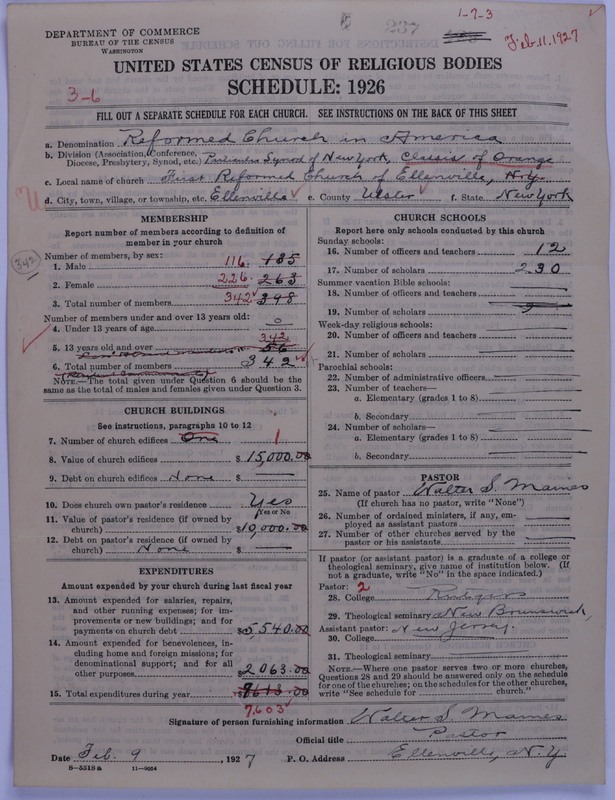 1-7-3
237
Feb. 11. 1927
DEPARTMENT OF COMMERCE
BUREAU OF THE CENSUS
WASHINGTON
UNITED STATES CENSUS OF RELIGIOUS BODIES
SCHEDULE: 1926
3-6
FILL OUT A SEPARATE SCHEDULE FOR EACH CHURCH. SEE INSTRUCTIONS ON THE BACK OF THIS SHEET
a. Denomination Reformed Church in America
b. Division (Association, Conference, Diocese, Presbytery, Synod, etc.) Particular Synod of New York, Classis of Orange
c. Local name of church First Reformed Church of Ellenville, N.Y.
d. City, town, village, or township, etc. Ellenville e. County Ulster f. State New York
MEMBERSHIP
Report number of members according to definition of
member in your church
Number of members, by sex:
1. Male 116 135
2. Female 226 263
342
3. Total number of members 342 398
Number of members under and over 13 years old:
4. Under 13 years of age 0
342
5. 13 years old and over 56
6. Total number of members 342
NOTE.—The total given under Question 6 should be
same as the total of males and females given under Question 3.
CHURCH BUILDINGS
See instructions, paragraphs 10 to 12
7. Number of church edifices One 1
8. Value of church edifices $15,000.00
9. Debt on church edifices None $
10. Does church own pastor's residence Yes
Yes or No
11. Value of pastor's residence (if owned by
church) $10,000.00
12. Debt on pastor's residence (if owned by
church) None $
EXPENDITURES
Amount expended by your church during last fiscal year
13. Amount expended for salaries, repairs,
and other running expenses; for im-
provements or new buildings; and for
payments on church debt $5540.00
14. Amount expended for benevolences, in-
cluding home and foreign missions; for
denominational support; and for all
other purposes $2063.00
15. Total expenditures during year $7613.00
7.603
CHURCH SCHOOLS
Report here only schools conducted by this church
Sunday schools:
16. Number of officers and teachers 12
17. Number of scholars 230
Summer vacation Bible schools:
18. Number of officers and teachers
19. Number of scholars
Week-day religious schools:
20. Number of officers and teachers
21. Number of scholars
Parochial schools:
22. Number of administrative officers
23. Number of teachers—
a. Elementary (grades 1 to 8)
b. Secondary
24. Number of scholars—
a. Elementary (grades 1 to 8)
b. Secondary
PASTOR
25. Name of pastor Walter S. Maines
(If church has no pastor, write "None")
26. Number of ordained ministers, if any, em-
ployed as assistant pastors
27. Number of other churches served by the
pastor or his assistants
If pastor (or assistant pastor) is a graduate of a college or
theological seminary, give name of institution below. (If
not a graduate, write "No" in the space indicated.)
Pastor: 2
28. College Rutgers
29. Theological seminary New Brunswick,
Assistant pastor: New Jersey.
30. College
31. Theological seminary
NOTE.—Where one pastor serves two or more churches,
Questions 28 and 29 should be answered only on the schedule
for one of the churches; on the schedules for the other churches,
write "See schedule for church."
Signature of person furnishing information Walter S. Maines
Official title Pastor
Date Feb. 9, 1927 P. O. Address Ellenville, N.Y.
8-5518a 11-9054